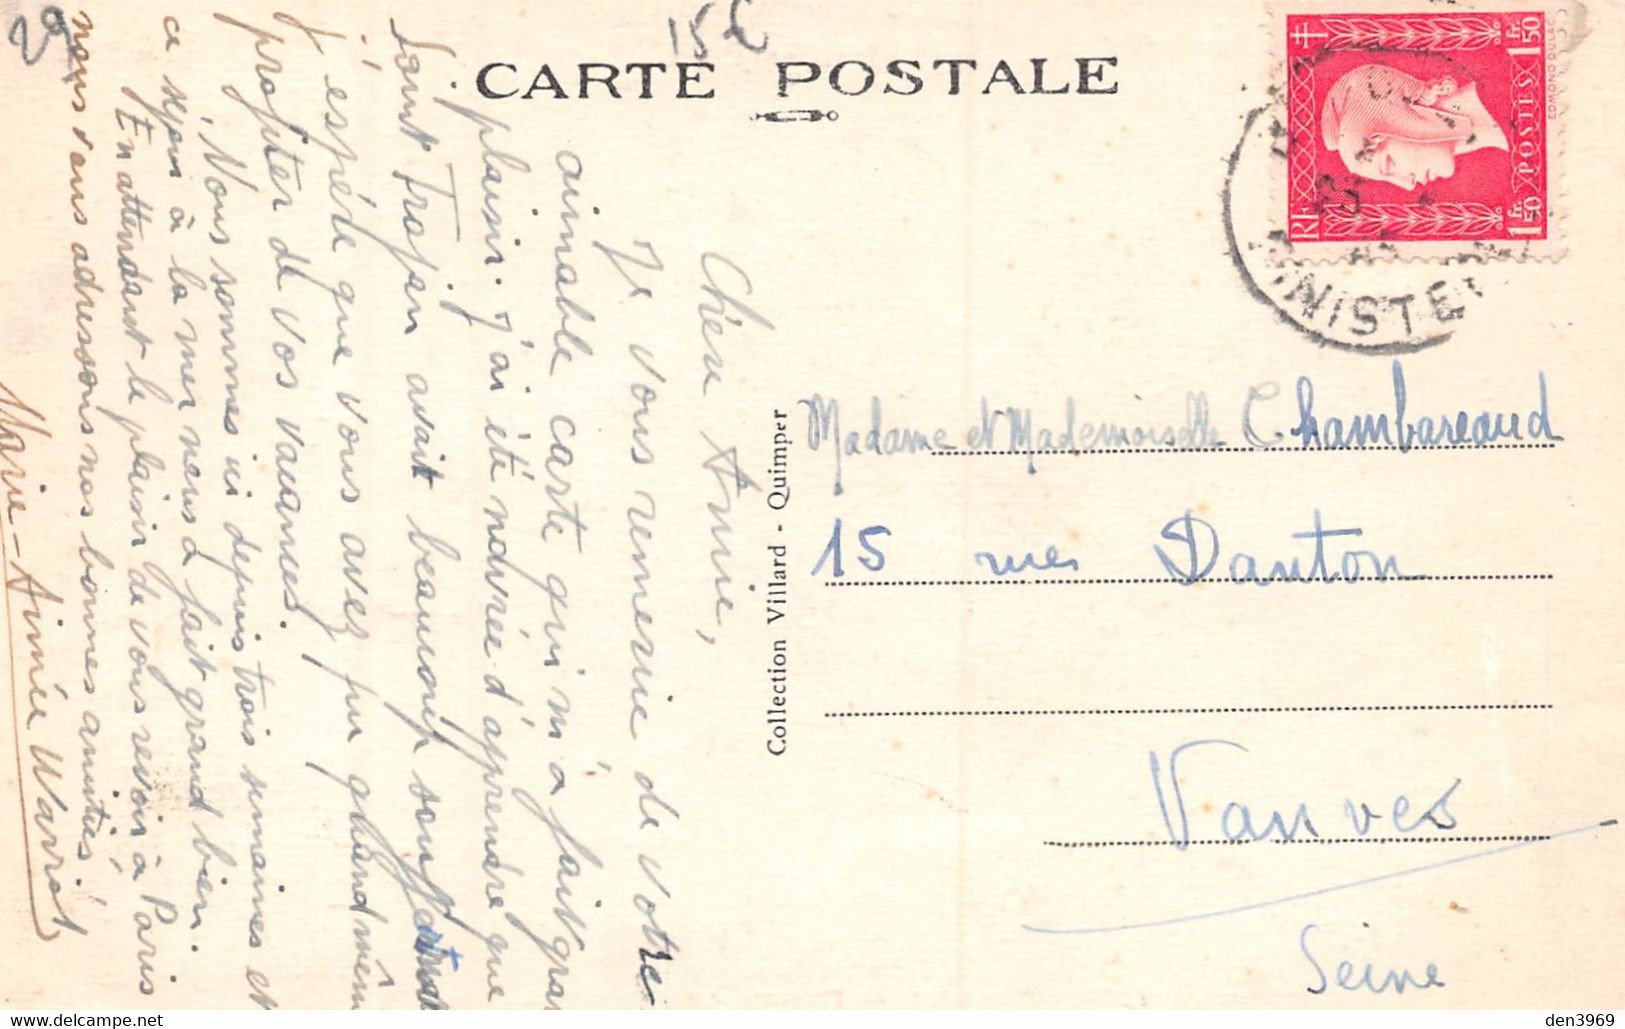 29
CARTE POSTALE
Chère Amie,
Je vous remercie de votre
aimable carte qui m'a fait gran
plaisir. J'ai été navrée d'apprendre que
Saint Trojan avait beaucoup souffert
j'espère que vous avez pu quand mêm
profiter de vos vacances.
Nous sommes ici depuis trois semaines et
ce séjour à la mer nous a fait grand bien.
En attendant le plaisir de vous revoir à Paris
nous vous adressons nos bonnes amitiés.
Marie-Aimée
Collection Villard - Quimper
RF
1 Fr. 50
POSTES
1 Fr. 50
EDMOND DULAC
INISTE
Madame et Mademoiselle Chambareaud
15 rue Danton
Vanves
Seine
den3969